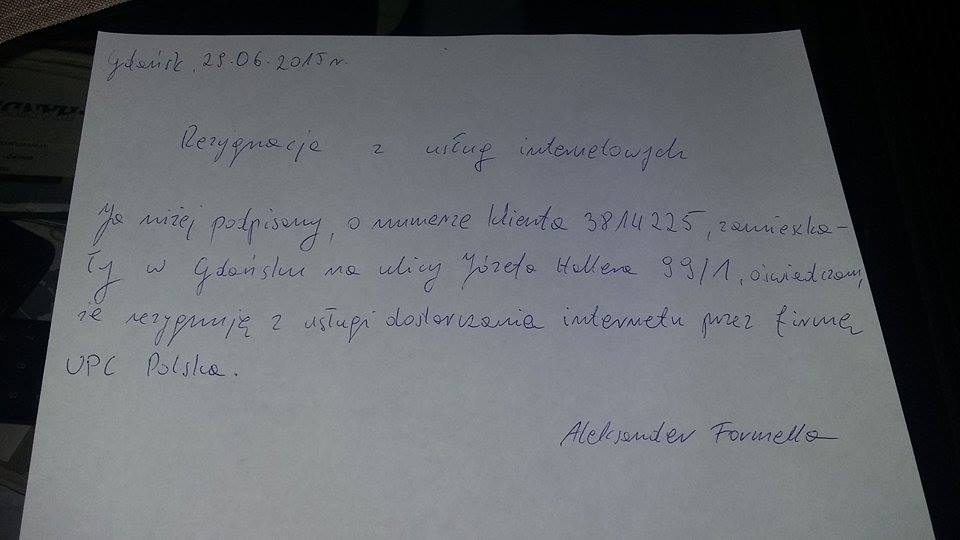 Gdańsk, 29.06.2015 r.
Rezygnacja z usług internetowych
Ja niżej podpisany, o numerze klienta 3814225, zamieszka-
ły w Gdańsku na ulicy Józefa Hallera 99/1, oświadczam,
że rezygnuję z usługi dostarczania internetu przez firmę
UPC Polska.
Aleksander Formella